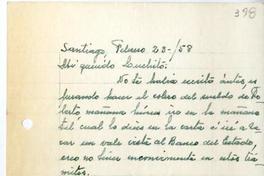 398
Santiago, Febrero 23-/58
Mi querido Luchito:
No te había escrito antes, es
perando hacer el cobro del sueldo de
mañana iré en la mañana
cual lo dices en la carta si iré a
car un vale vista al Banco del Estado,
creo no hacer en estos trá
mites.